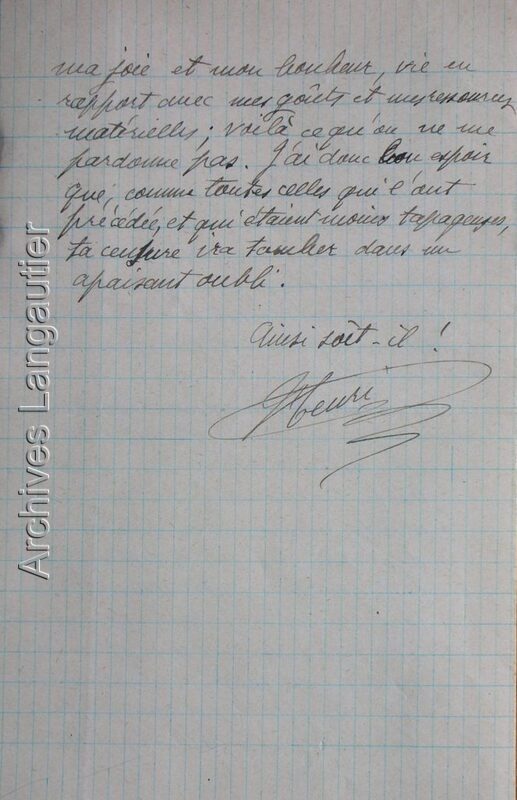 ma joie et mon bonheur, vie en
rapport avec mes goûts et mes ressources
matérielles ; voilà ce qu'on ne me
pardonne pas. J'ai donc bon espoir
que, comme toutes celles qui l'ont
précédée, et qui étaient moins tapageuses,
ta censure va tomber dans un
apaisant oubli.
Ainsi soit-il !
Henri
Archives Langautier